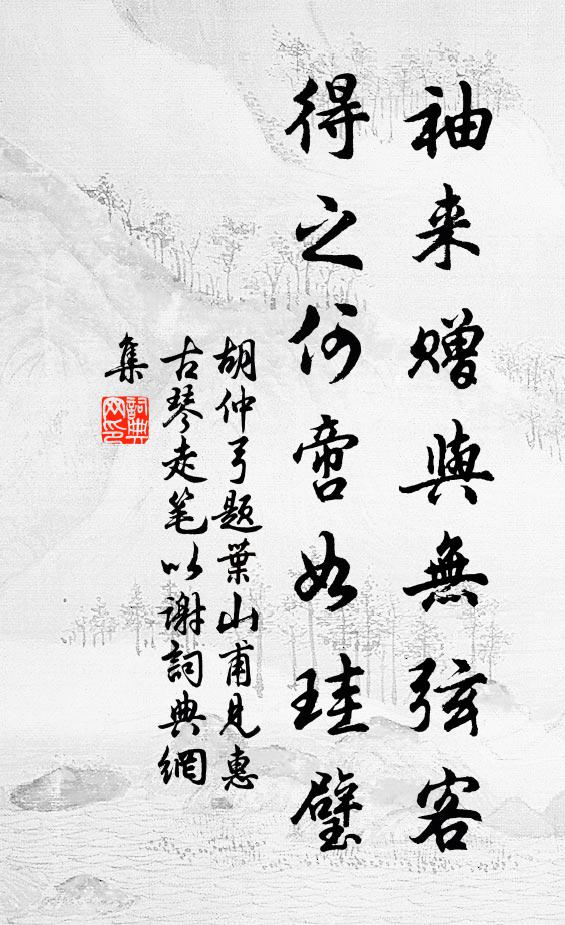 袖来赠與無弦客
得之何啻如珪璧
胡仲弓题葉山甫見惠
古琴走笔以谢詞典網
集
詞典网印